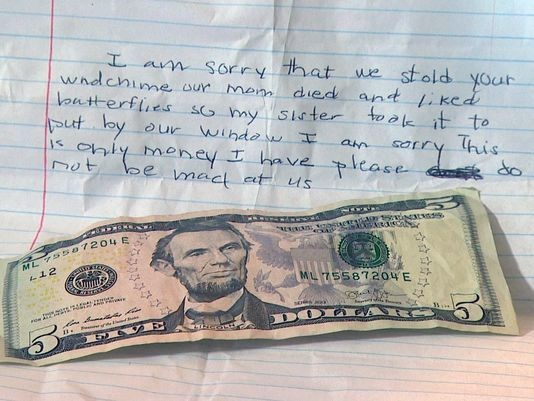 I am sorry that we stold your
windchime our mom died and liked
butterflies so my sister took it to
put by our window I am sorry This
is only money I have please do
not be mad at us
FEDERAL RESERVE NOTE
THE UNITED STATES
OF AMERICA
ML 75587204 E
L12
ML 75587204 E
THIS NOTE IS LEGAL TENDER
FOR ALL DEBTS, PUBLIC AND PRIVATE
Treasurer of the United States
SERIES 2013
LINCOLN
5 FIVE DOLLARS 5